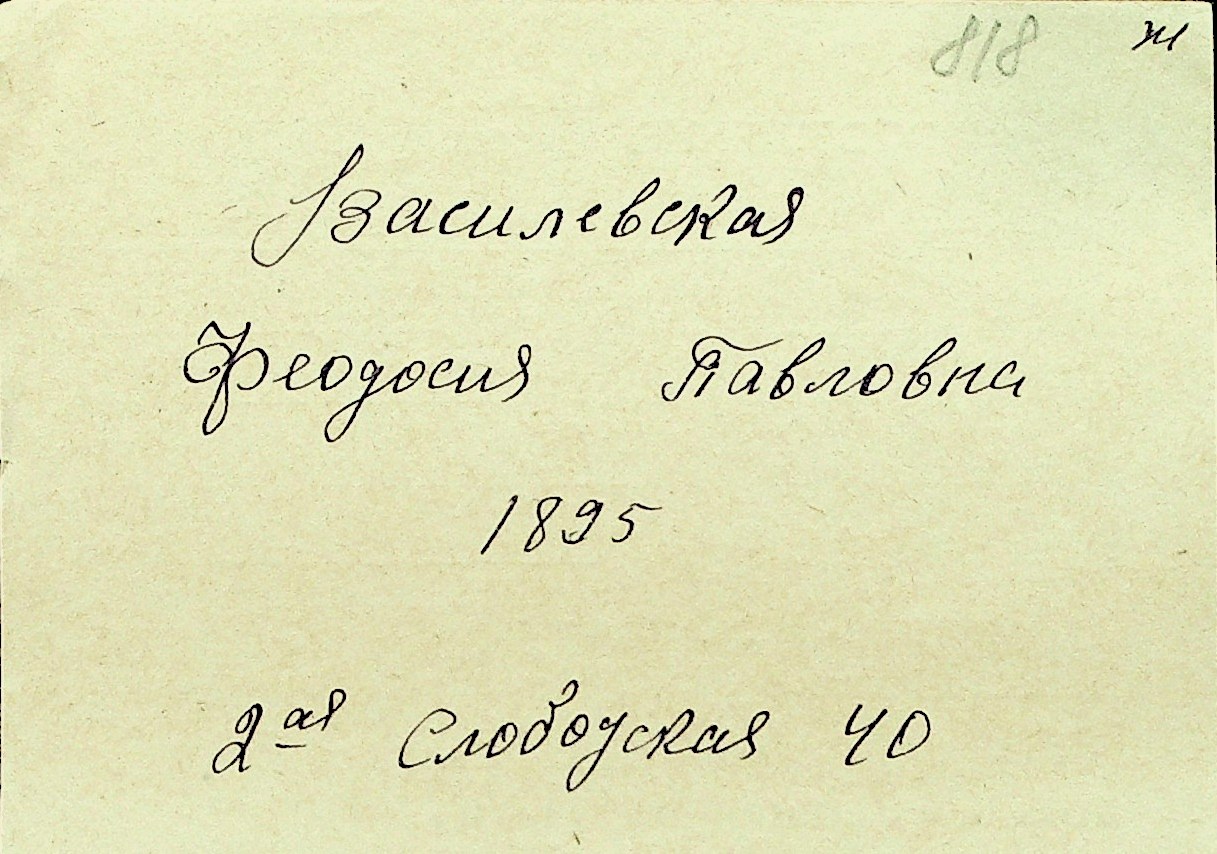 818 ж
Василевская
Феодосия Павловна
1895
2ая Слободская 40